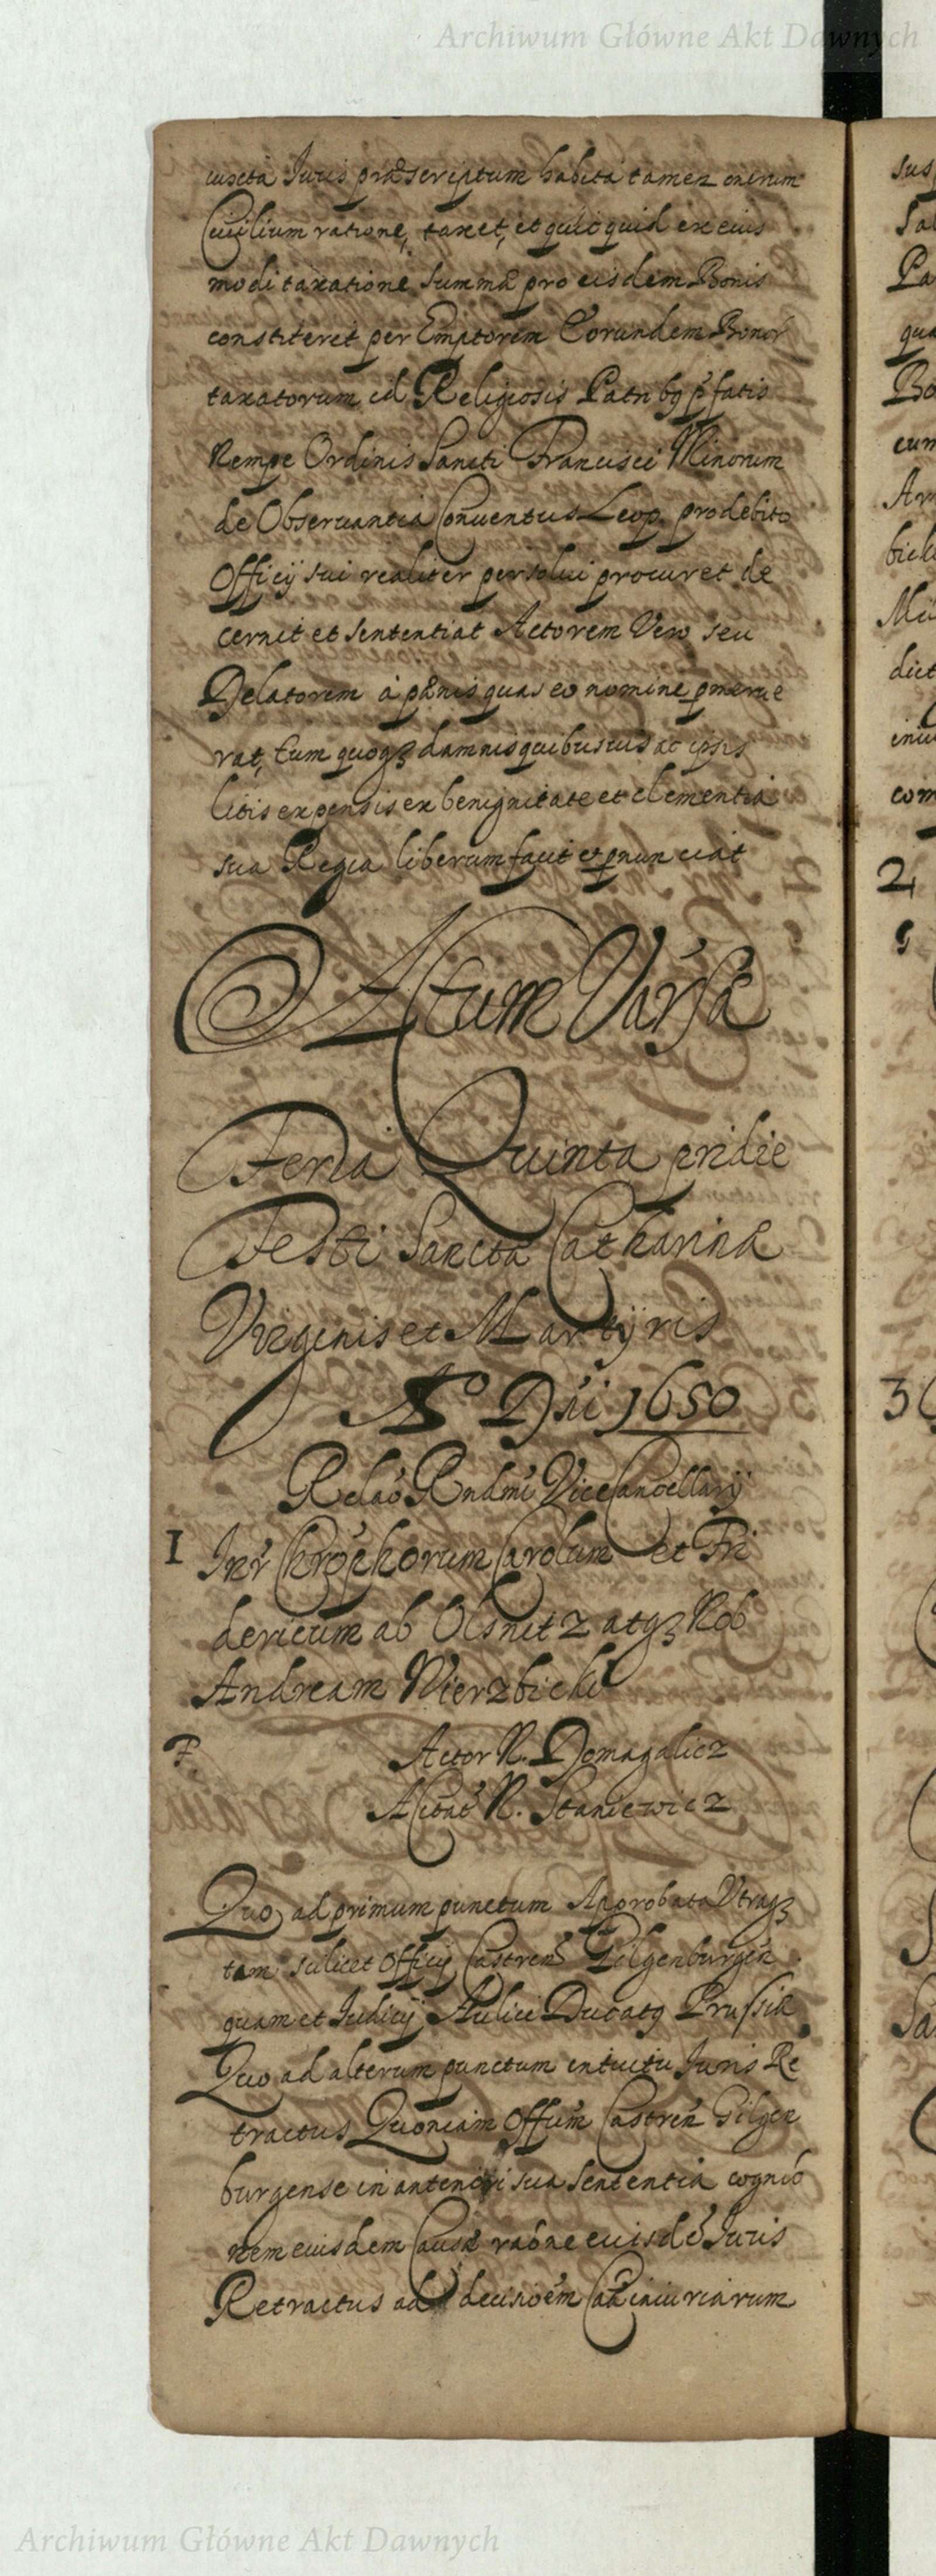 Archiwum Główne Akt Dawnych
iuxta Iuris præscriptum habita tamen onerum
Civilium ratione, taxet, et quidquid ex eius
modi taxatione summa pro eisdem Bonis
constiterit per Emptorem Eorundem Bonor
taxatorum id Religiosis Patribq pfatis
Nempe Ordinis Sancti Francisci Minorum
de Observantia Conventus Leop. pro debito
Officij sui realiter persolui procuret de
cernit et sententiat Actorem Vero seu
Delatorem à pænis quas eo nomine pmerue
rat, tum quoqz damnis quibusuis ac ipsis
litis expensis ex benignitate et clementia
sua Regia liberum facit et pnunciat
Actum Varsæ
Feria Quinta pridie
Festi Sanctæ Catharinæ
Virginis et Martÿris
Aº Dni 1650
Relaõ Rndmi ViceCancellarij
1 Inr Chrõphorum Carolum et Fri
dericum ab Olsnitz atqz Nob
Andream Wierzbicki
F. Actor N. Domagalicz
ACitat N. Staniewicz
Quo ad primum punctum Approbata Vtraqz
tam scilicet Officij Castren Gilgenburgen
quam et Iudicij Aulici Ducatq Prussiæ
Quo ad alterum punctum intuitu Iuris Re
tractus Quoniam Offum Castren Gilgen
burgense in anteriori sua sententia cognio
nem eiusdem Causæ raõne eiusdẽ Iuris
Retractus ad decisioẽm Cau iniuriarum
2
3
Archiwum Główne Akt Dawnych